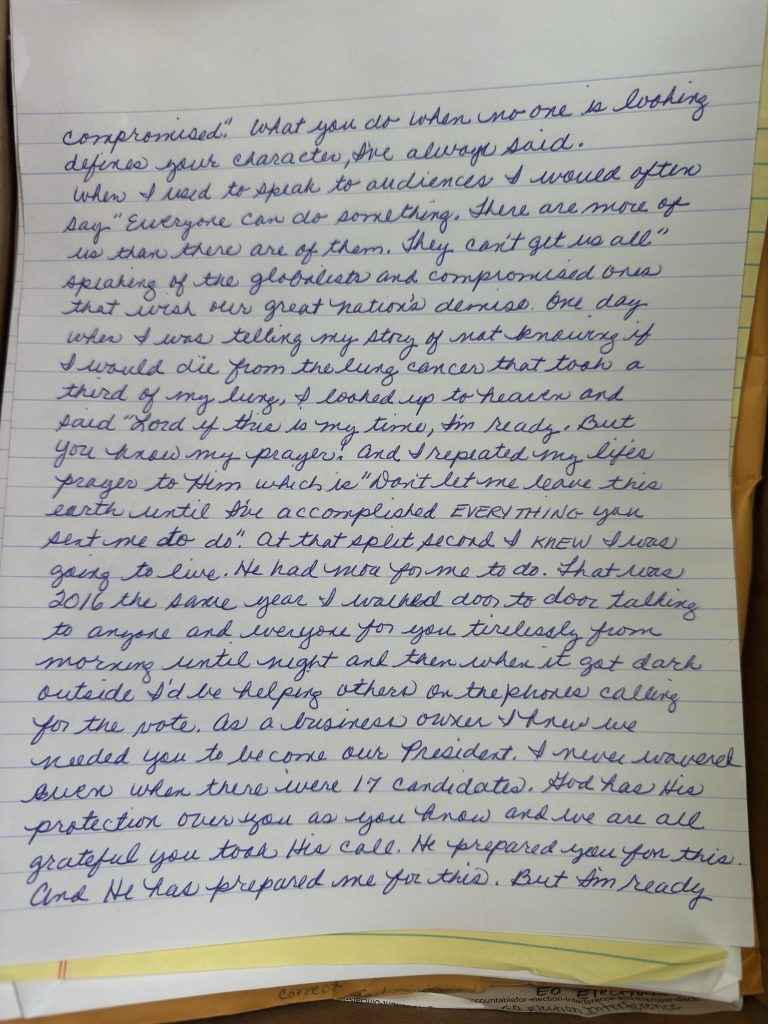 compromised". What you do when no one is looking
defines your character, I've always said.
When I used to speak to audiences I would often
say "Everyone can do something. There are more of
us than there are of them. They can't get us all"
speaking of the globalists and compromised ones
that wish our great nation's demise. One day
when I was telling my story of not knowing if
I would die from the lung cancer that took a
third of my lung, I looked up to heaven and
said "Lord if this is my time, I'm ready. But
you know my prayer". And I repeated my life's
prayer to Him which is "Don't let me leave this
earth until I've accomplished EVERYTHING you
sent me to do". At that split second I KNEW I was
going to live. He had more for me to do. That was
2016 the same year I walked door to door talking
to anyone and everyone for you tirelessly from
morning until night and then when it got dark
outside I'd be helping others on the phones calling
for the vote. As a business owner I knew we
needed you to become our President. I never wavered
even when there were 17 candidates. God has His
protection over you as you know and we are all
grateful you took His call. He prepared you for this.
And He has prepared me for this. But I'm ready
correct
EO Election
countablefor-election-interference-and-improper-
EO Election Interference